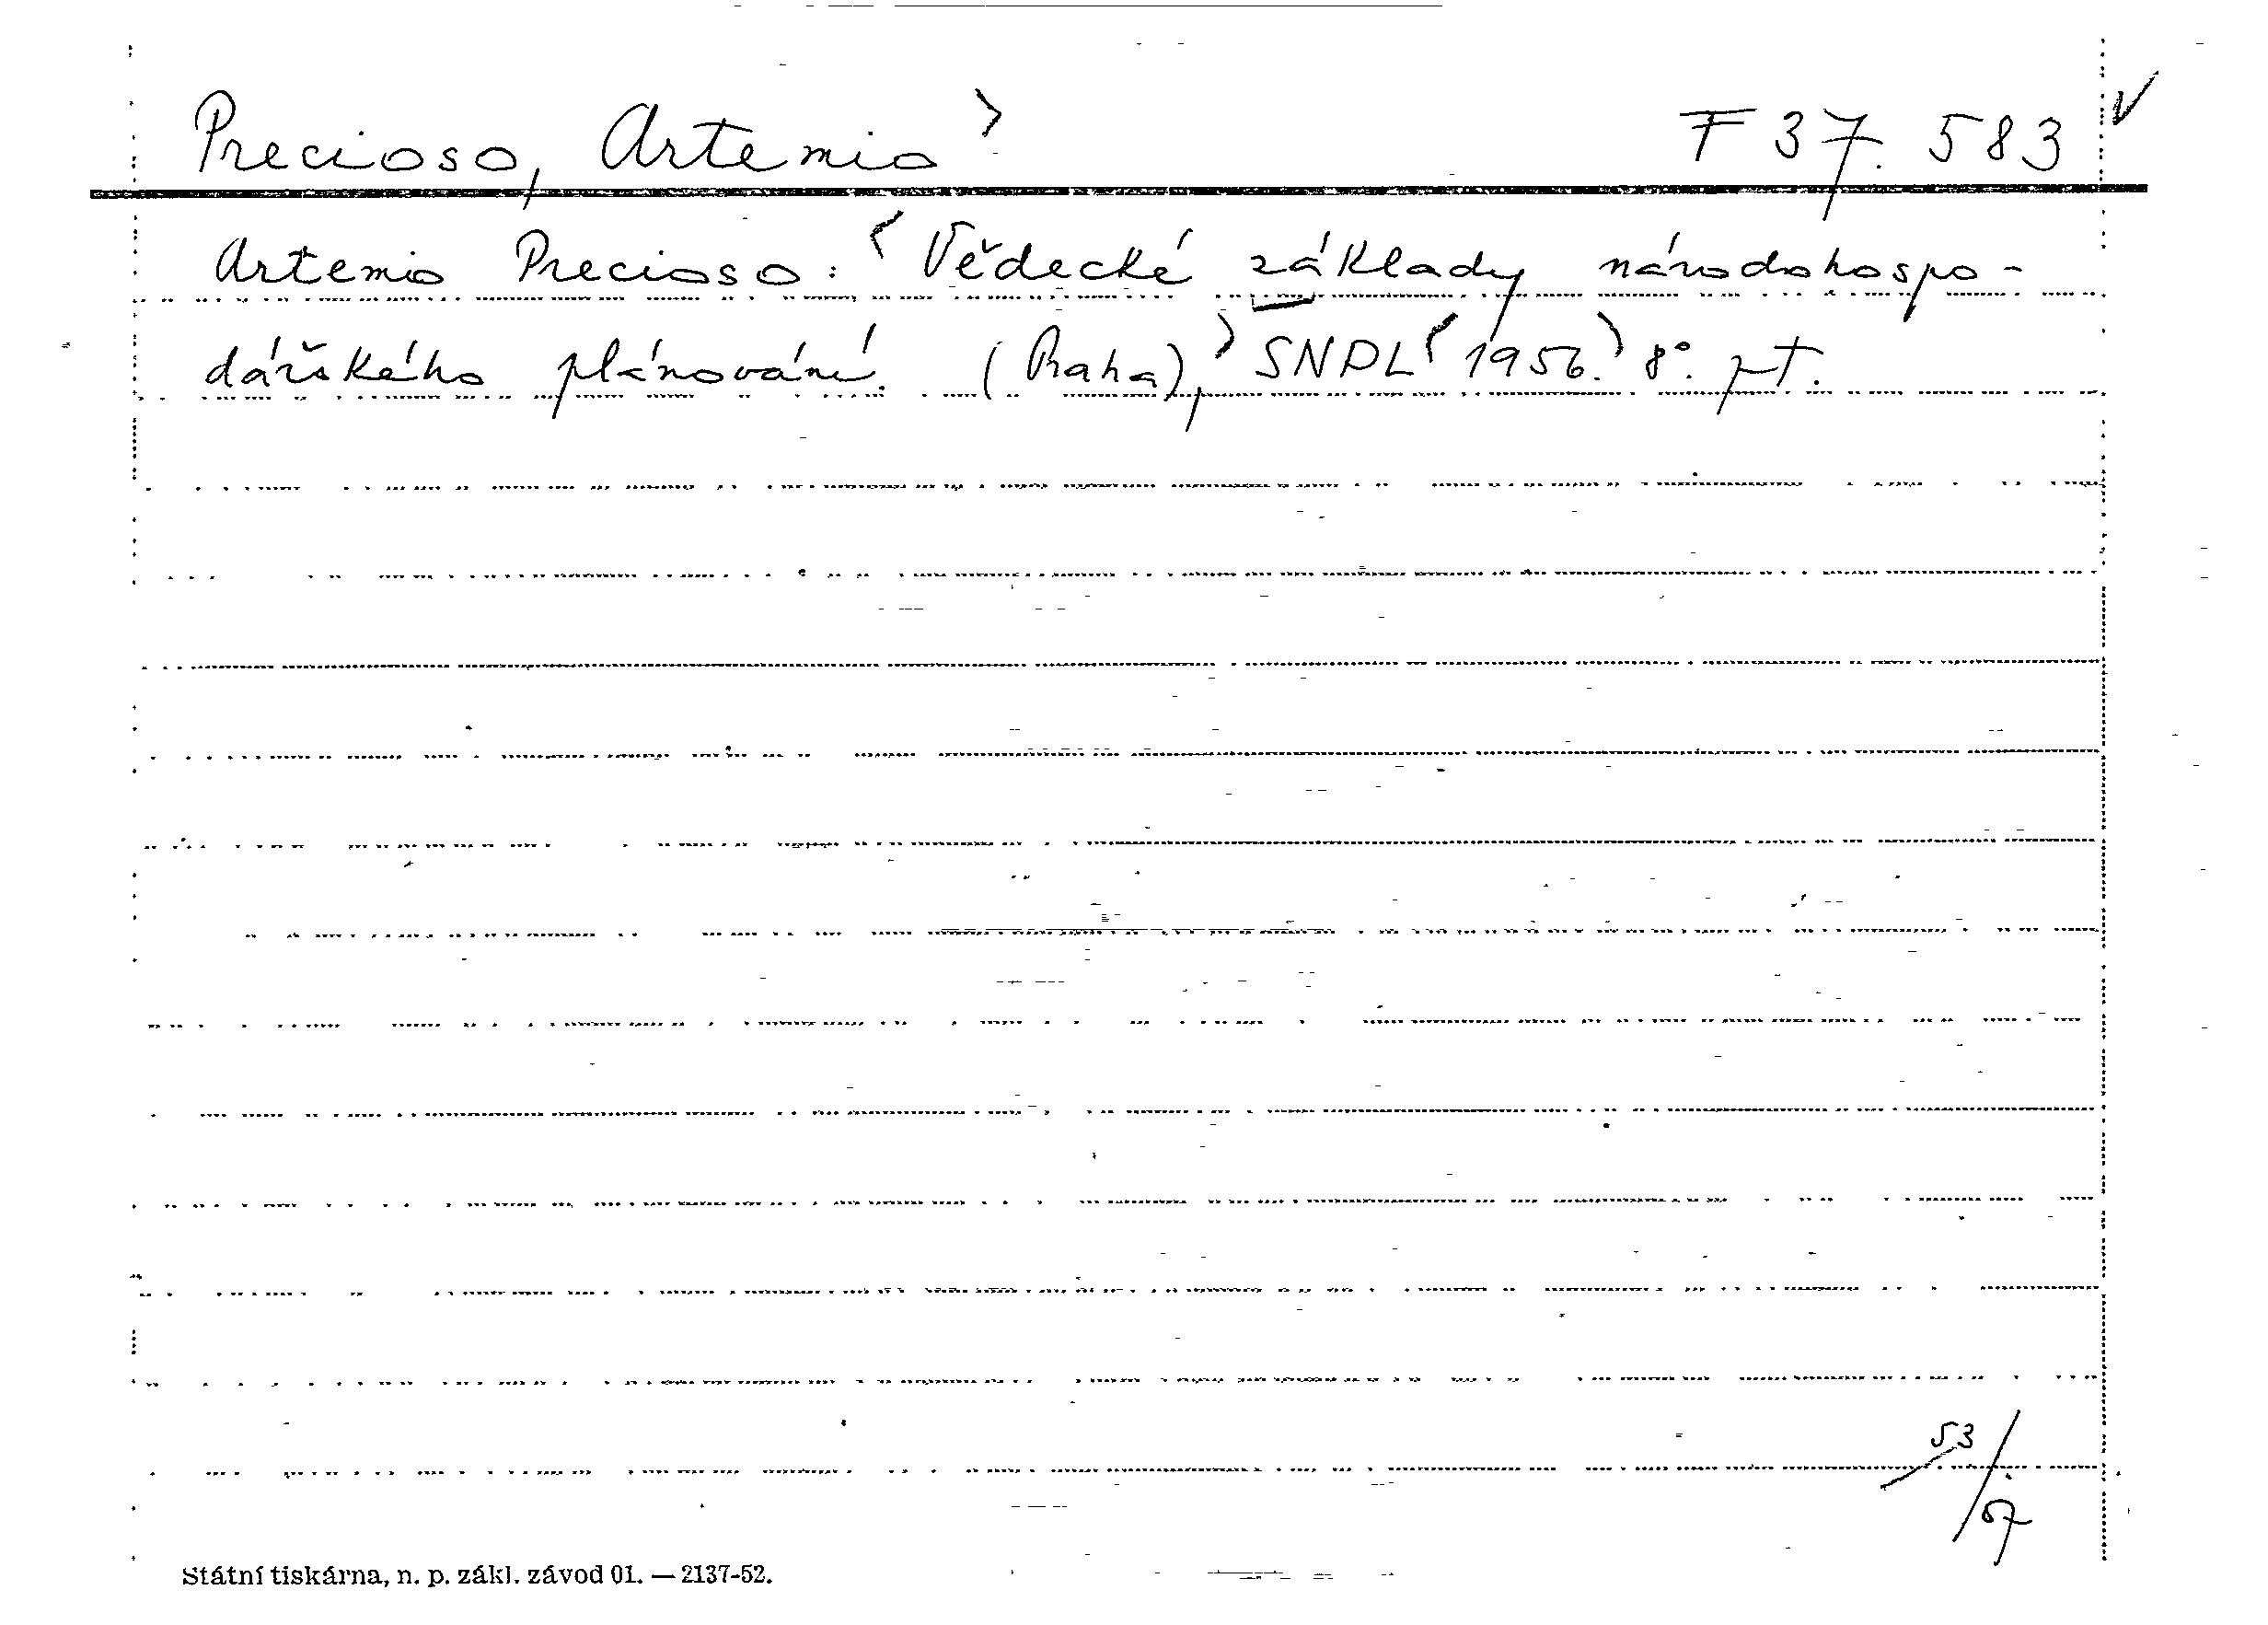 Precioso, Artemio F 37.583
Artemio Precioso: Vědecké základy národohospo-
dářského plánování. (Praha), SNPL 1956. 8°. pt.
53/57
Státní tiskárna, n. p. zákl. závod 01. — 2137-52.